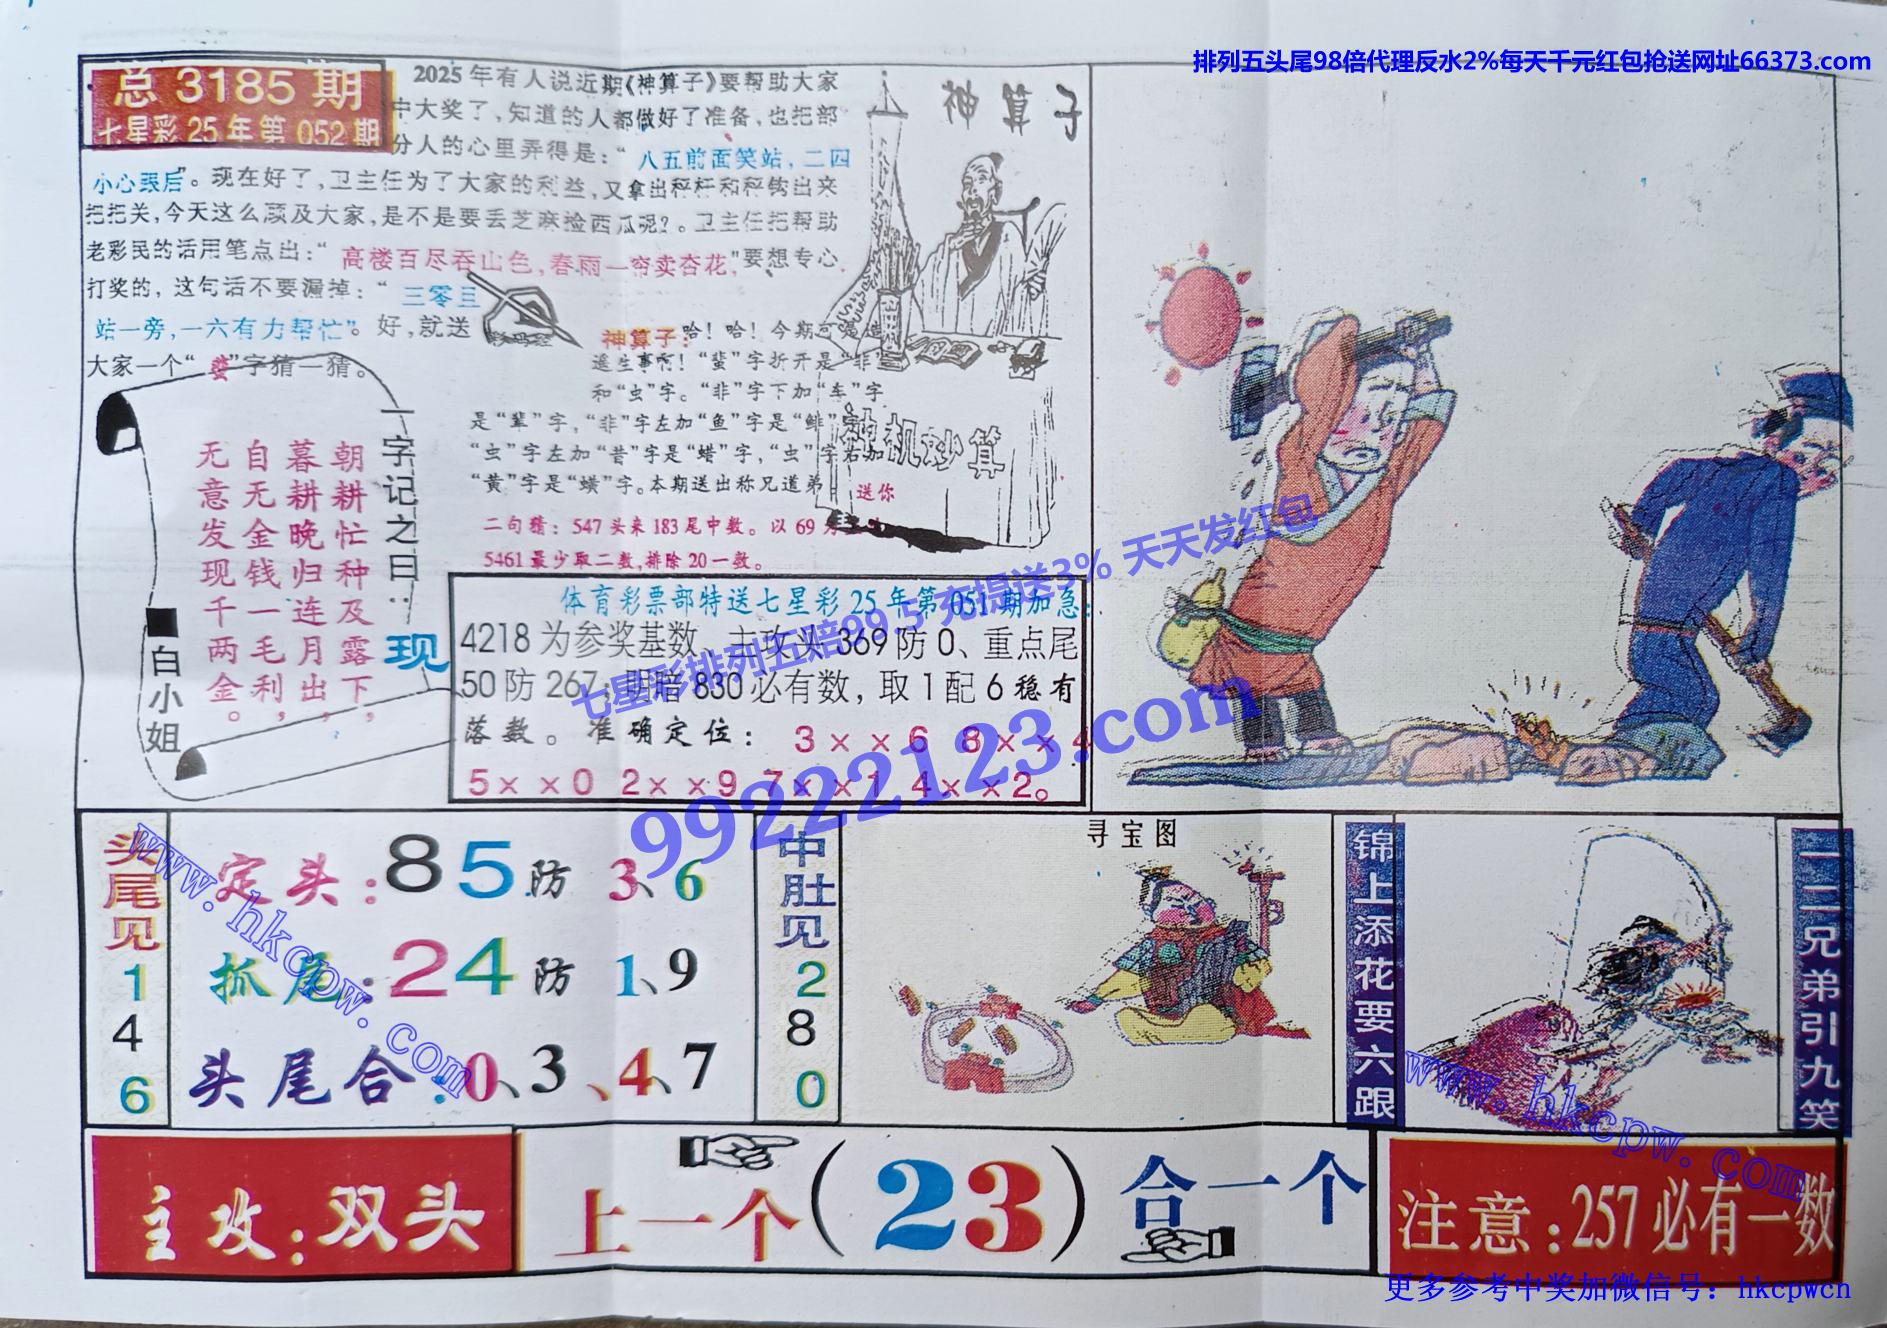 排列五头尾98倍代理反水2%每天千元红包抢送网址66373.com
总 3185 期
七星彩 25 年第 052 期
2025 年有人说近期《神算子》要帮助大家
中大奖了，知道的人都做好了准备，也把部
分人的心里弄得是：“八五前面笑站，二四
小心跟后”。现在好了，卫主任为了大家的利益，又拿出秤杆和秤钩出来
把把关，今天这么顾及大家，是不是要丢芝麻捡西瓜呢？。卫主任把帮助
老彩民的话用笔点出：“高楼百尽吞山色，春雨一帘卖杏花，”要想专心
打奖的，这句话不要漏掉：“三零且
站一旁，一六有力帮忙”。好，就送
大家一个“”字猜一猜。
神算子
神算子：哈！哈！今期可是造
遥生事啊！“蜚”字折开是“非”
和“虫”字。“非”字下加“车”字
是“辈”字，“非”字左加“鱼”字是“鲱”字
“虫”字左加“昔”字是“蜡”字，“虫”字右加
“黄”字是“蟥”字。本期送出称兄道弟 送你
二句精：547 头来 183 尾中数。以 69 为
5461 最少取二数，排除 20 一数。
神机妙算
一字记之曰：现
朝耕忙种及露下，
暮耕晚归连月出，
自无金钱一毛利，
无意发现千两金。
■白小姐
体育彩票部特送七星彩 25 年第 051 期加急：
4218 为参奖基数、主攻头 369 防 0、重点尾
50 防 267；阴暗 830 必有数，取 1 配 6 稳有
落数。准确定位：3××6 8××4
5××0 2××9 7××1 4××2。
七星彩排列五赔99.5 充提送3% 天天发红包
99222123.com
头尾见146
定头：85防 3、6
抓尾：24防 1、9
头尾合：0、3、4、7
www.hkcpw.com
中肚见280
寻宝图
锦上添花要六跟
一二兄弟引九笑
www.hkcpw.com
主攻：双头
上一个（23）合一个
注意：257必有一数
更多参考中奖加微信号：hkcpwcn